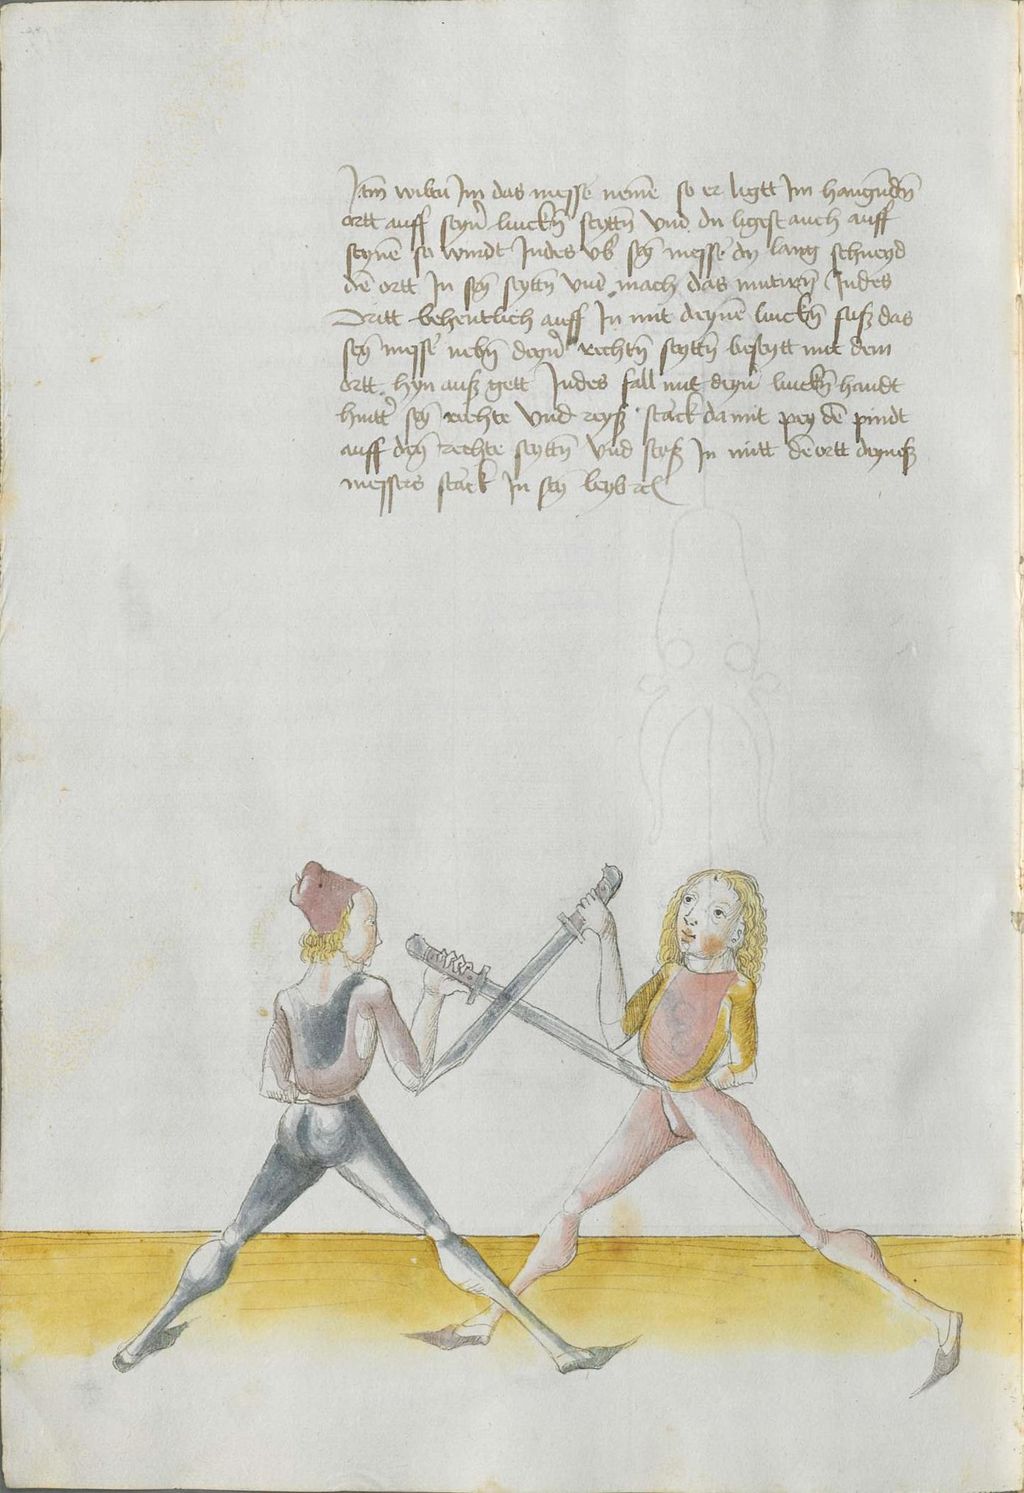 Itm̃ wiltu Im das messe nemẽ so er ligtt Im hangñdñ
ortt auff seyñ linckñ seyttñ Vnd du ligest auch auff
seynẽ so windt Indes vb̃ seỹ messe̾ dy lang schneyd
dẽ ortt In seỹ seyttñ Vnd mach das mutirñ Indes
Dritt behentlich auff In mit deynẽ linckñ fuß das
seỹ messe̾ nebñ deyñ rechtñ seyttñ beseytt mit dem
ortt hyn auß gett Indes fall mit deyñ linckñ handt
hintt̾ seỹ rechte Vnd reyß starck da mit pey dẽ pindt
auff deỹ rechte seyttñ Vnd stoß In mitt dẽ ortt deyneß
messers starck In seỹ leyb